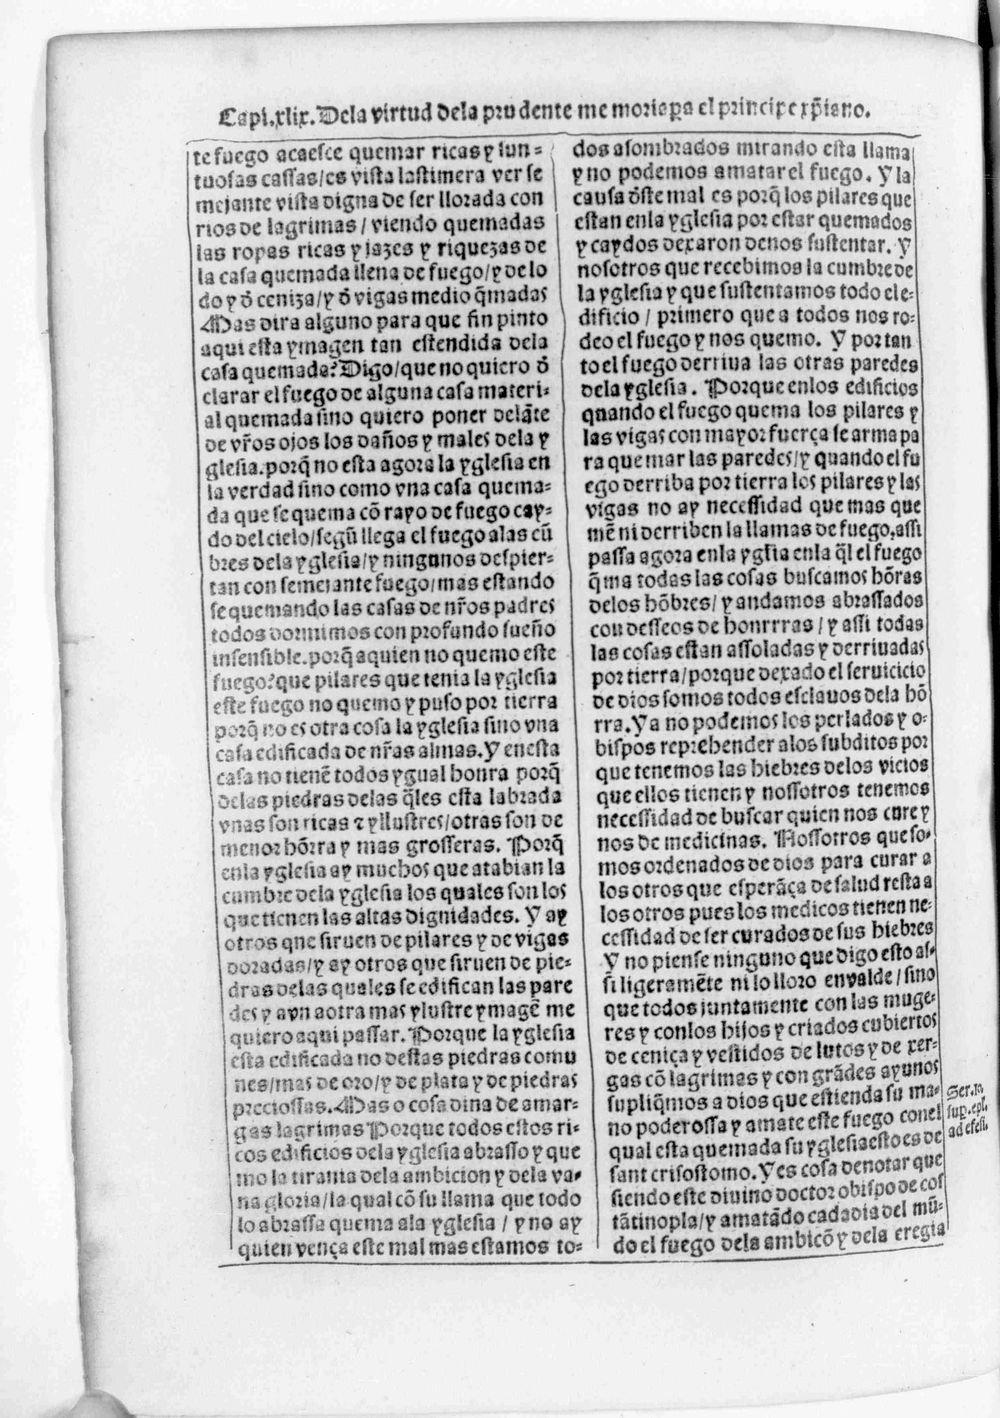 Capi.xlix. Dela virtud dela prudente memoria pa el principe xp̄iano.
te fuego acaesce quemar ricas y sun-
tuosas cassas/es vista lastimera ver se
mejante vista digna de ser llorada con
rios de lagrimas/viendo quemadas
las ropas ricas y jazes y riquezas de
la casa quemada llena de fuego/y de lo
do y d̄ ceniza/y d̄ vigas medio q̄madas
Mas dira alguno para que fin pinto
aqui esta ymagen tan estendida dela
casa quemada? Digo/que no quiero d̄
clarar el fuego de alguna casa materi-
al quemada sino quiero poner delāte
de vr̄os ojos los daños y males dela y
glesia.porq̄ no esta agora la yglesia en
la verdad sino como vna casa quema-
da que se quema cō rayo de fuego cay-
do del cielo/segū llega el fuego alas cū
bres dela yglesia/y ningunos despier-
tan con semejante fuego/mas estando
se quemando las casas de nr̄os padres
todos dormimos con profundo sueño
insensible.porq̄ a quien no quemo este
fuego?que pilares que tenia la yglesia
este fuego no quemo y puso por tierra
porq̄ no es otra cosa la yglesia sino vna
casa edificada de nr̄as almas. Y en esta
casa no tienē todos ygual honra porq̄
delas piedras delas q̄les esta labrada
vnas son ricas ⁊ yllustres/otras son de
menor hōrra y mas grosseras. Porq̄
enla yglesia ay muchos que atabian la
cumbre dela yglesia los quales son los
que tienen las altas dignidades. Y ay
otros que siruen de pilares y de vigas
doradas/y ay otros que siruen de pie-
dras delas quales se edifican las pare
des y avn a otra mas ylustre ymagē me
quiero aqui passar. Porque la yglesia
esta edificada no destas piedras comu
nes/mas de oro/y de plata y de piedras
preciossas. Mas o cosa dina de amar-
gas lagrimas Porque todos estos ri-
cos edificios dela yglesia abrasso y que
mo la tirania dela ambicion y dela va-
na gloria/la qual cō su llama que todo
lo abrassa quema ala yglesia/y no ay
quien vença este mal mas estamos to-
dos asombrados mirando esta llama
y no podemos amatar el fuego. Y la
causa d̄ste mal es porq̄ los pilares que
estan enla yglesia por estar quemados
y caydos dexaron denos sustentar. Y
nosotros que recebimos la cumbre de
la yglesia y que sustentamos todo el e-
dificio/primero que a todos nos ro-
deo el fuego y nos quemo. Y por tan
to el fuego derriua las otras paredes
dela yglesia. Porque enlos edificios
quando el fuego quema los pilares y
las vigas con mayor fuerça se arma pa
ra quemar las paredes/y quando el fu
ego derriba por tierra los pilares y las
vigas no ay necessidad que mas que
mē ni derriben la llamas de fuego.assi
passa agora enla yglīa enla q̄l el fuego
q̄ma todas las cosas buscamos hōras
delos hōbres/y andamos abrassados
con desseos de honrrras/y assi todas
las cosas estan assoladas y derriuadas
por tierra/porque dexado el seruicicio
de dios somos todos esclauos dela hō
rra. Ya no podemos los perlados y o-
bispos reprehender alos subditos por
que tenemos las hiebres delos vicios
que ellos tienen y nossotros tenemos
necessidad de buscar quien nos cure y
nos de medicinas. Nossotros que so-
mos ordenados de dios para curar a
los otros que esperāça de salud resta a
los otros pues los medicos tienen ne-
cessidad de ser curados de sus hiebres
Y no piense ninguno que digo esto as-
si ligeramēte ni lo lloro en valde/sino
que todos juntamente con las muge-
res y conlos hijos y criados cubiertos
de ceniça y vestidos de lutos y de xer-
gas cō lagrimas y con grādes ayunos
supliq̄mos a dios que estienda su ma-
no poderossa y amate este fuego conel
qual esta quemada su yglesia esto es de
sant crisostomo. Y es cosa de notar que
siendo este diuino doctor obispo de cos
tātinopla/y amatādo cada dia del mū-
do el fuego dela ambicō y dela eregia
Ser.10.
sup.epl.
ad efesi.